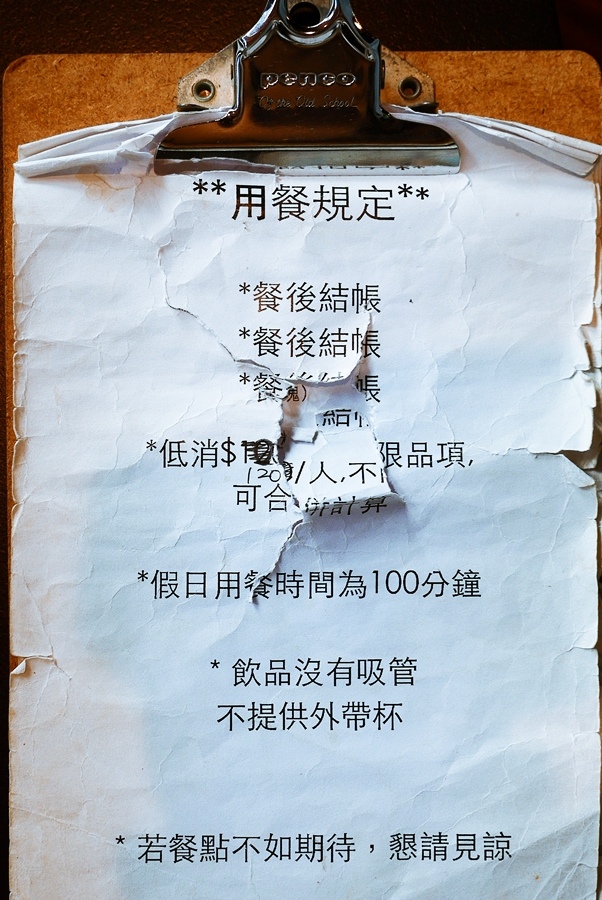 penco
**用餐規定**
*餐後結帳
*餐後結帳
*餐 帳
鬼)
結
*低消$1 限品項,
120 /人,不
可合 併計算
*假日用餐時間為100分鐘
* 飲品沒有吸管
不提供外帶杯
* 若餐點不如期待，懇請見諒